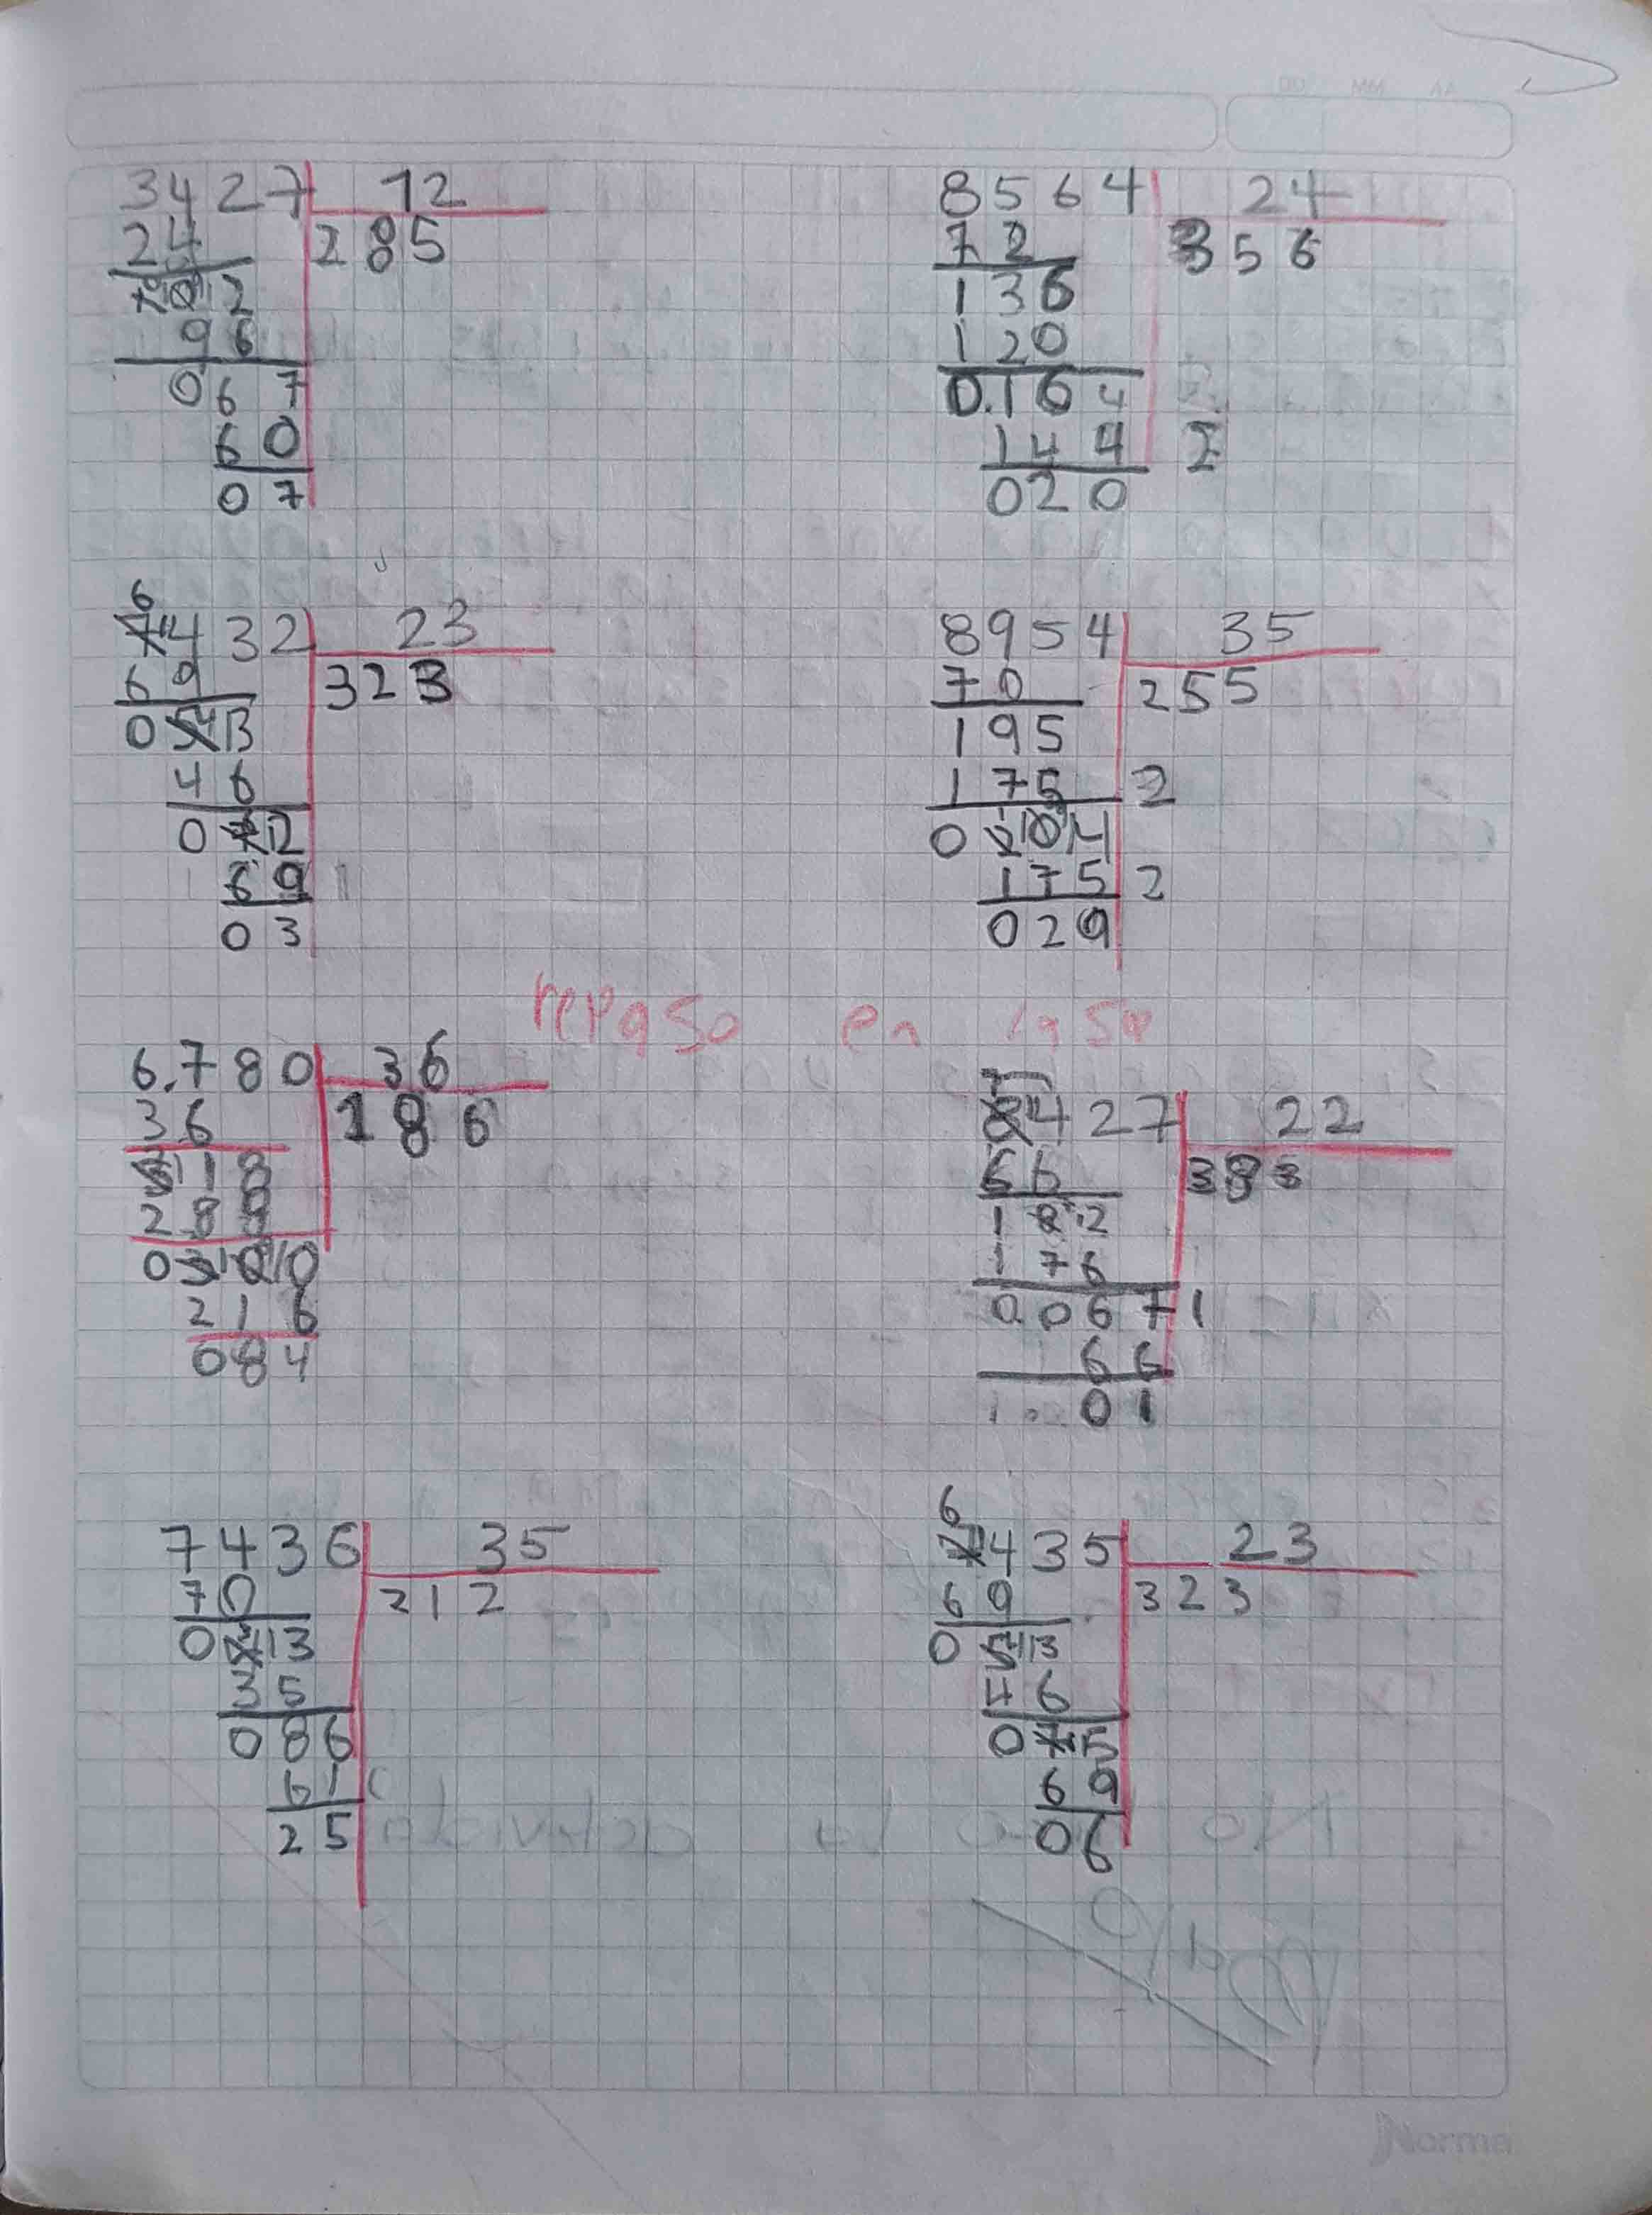 3427 12
24 285
102
96
067
60
07
8564 24
72 356
136
120
0.164
144 2
020
6
7432 23
69 323
0513
46
0712
69
03
8954 35
70 255
195
175 2
0204
175 2
029
repaso en casa
6.780 36
36 186
318
288
0300
216
084
7
8427 22
66 383
182
176
0067 1
66
01
7436 35
70 212
0413
35
086
61
25
6
7435 23
69 323
0513
46
075
69
06
Norma